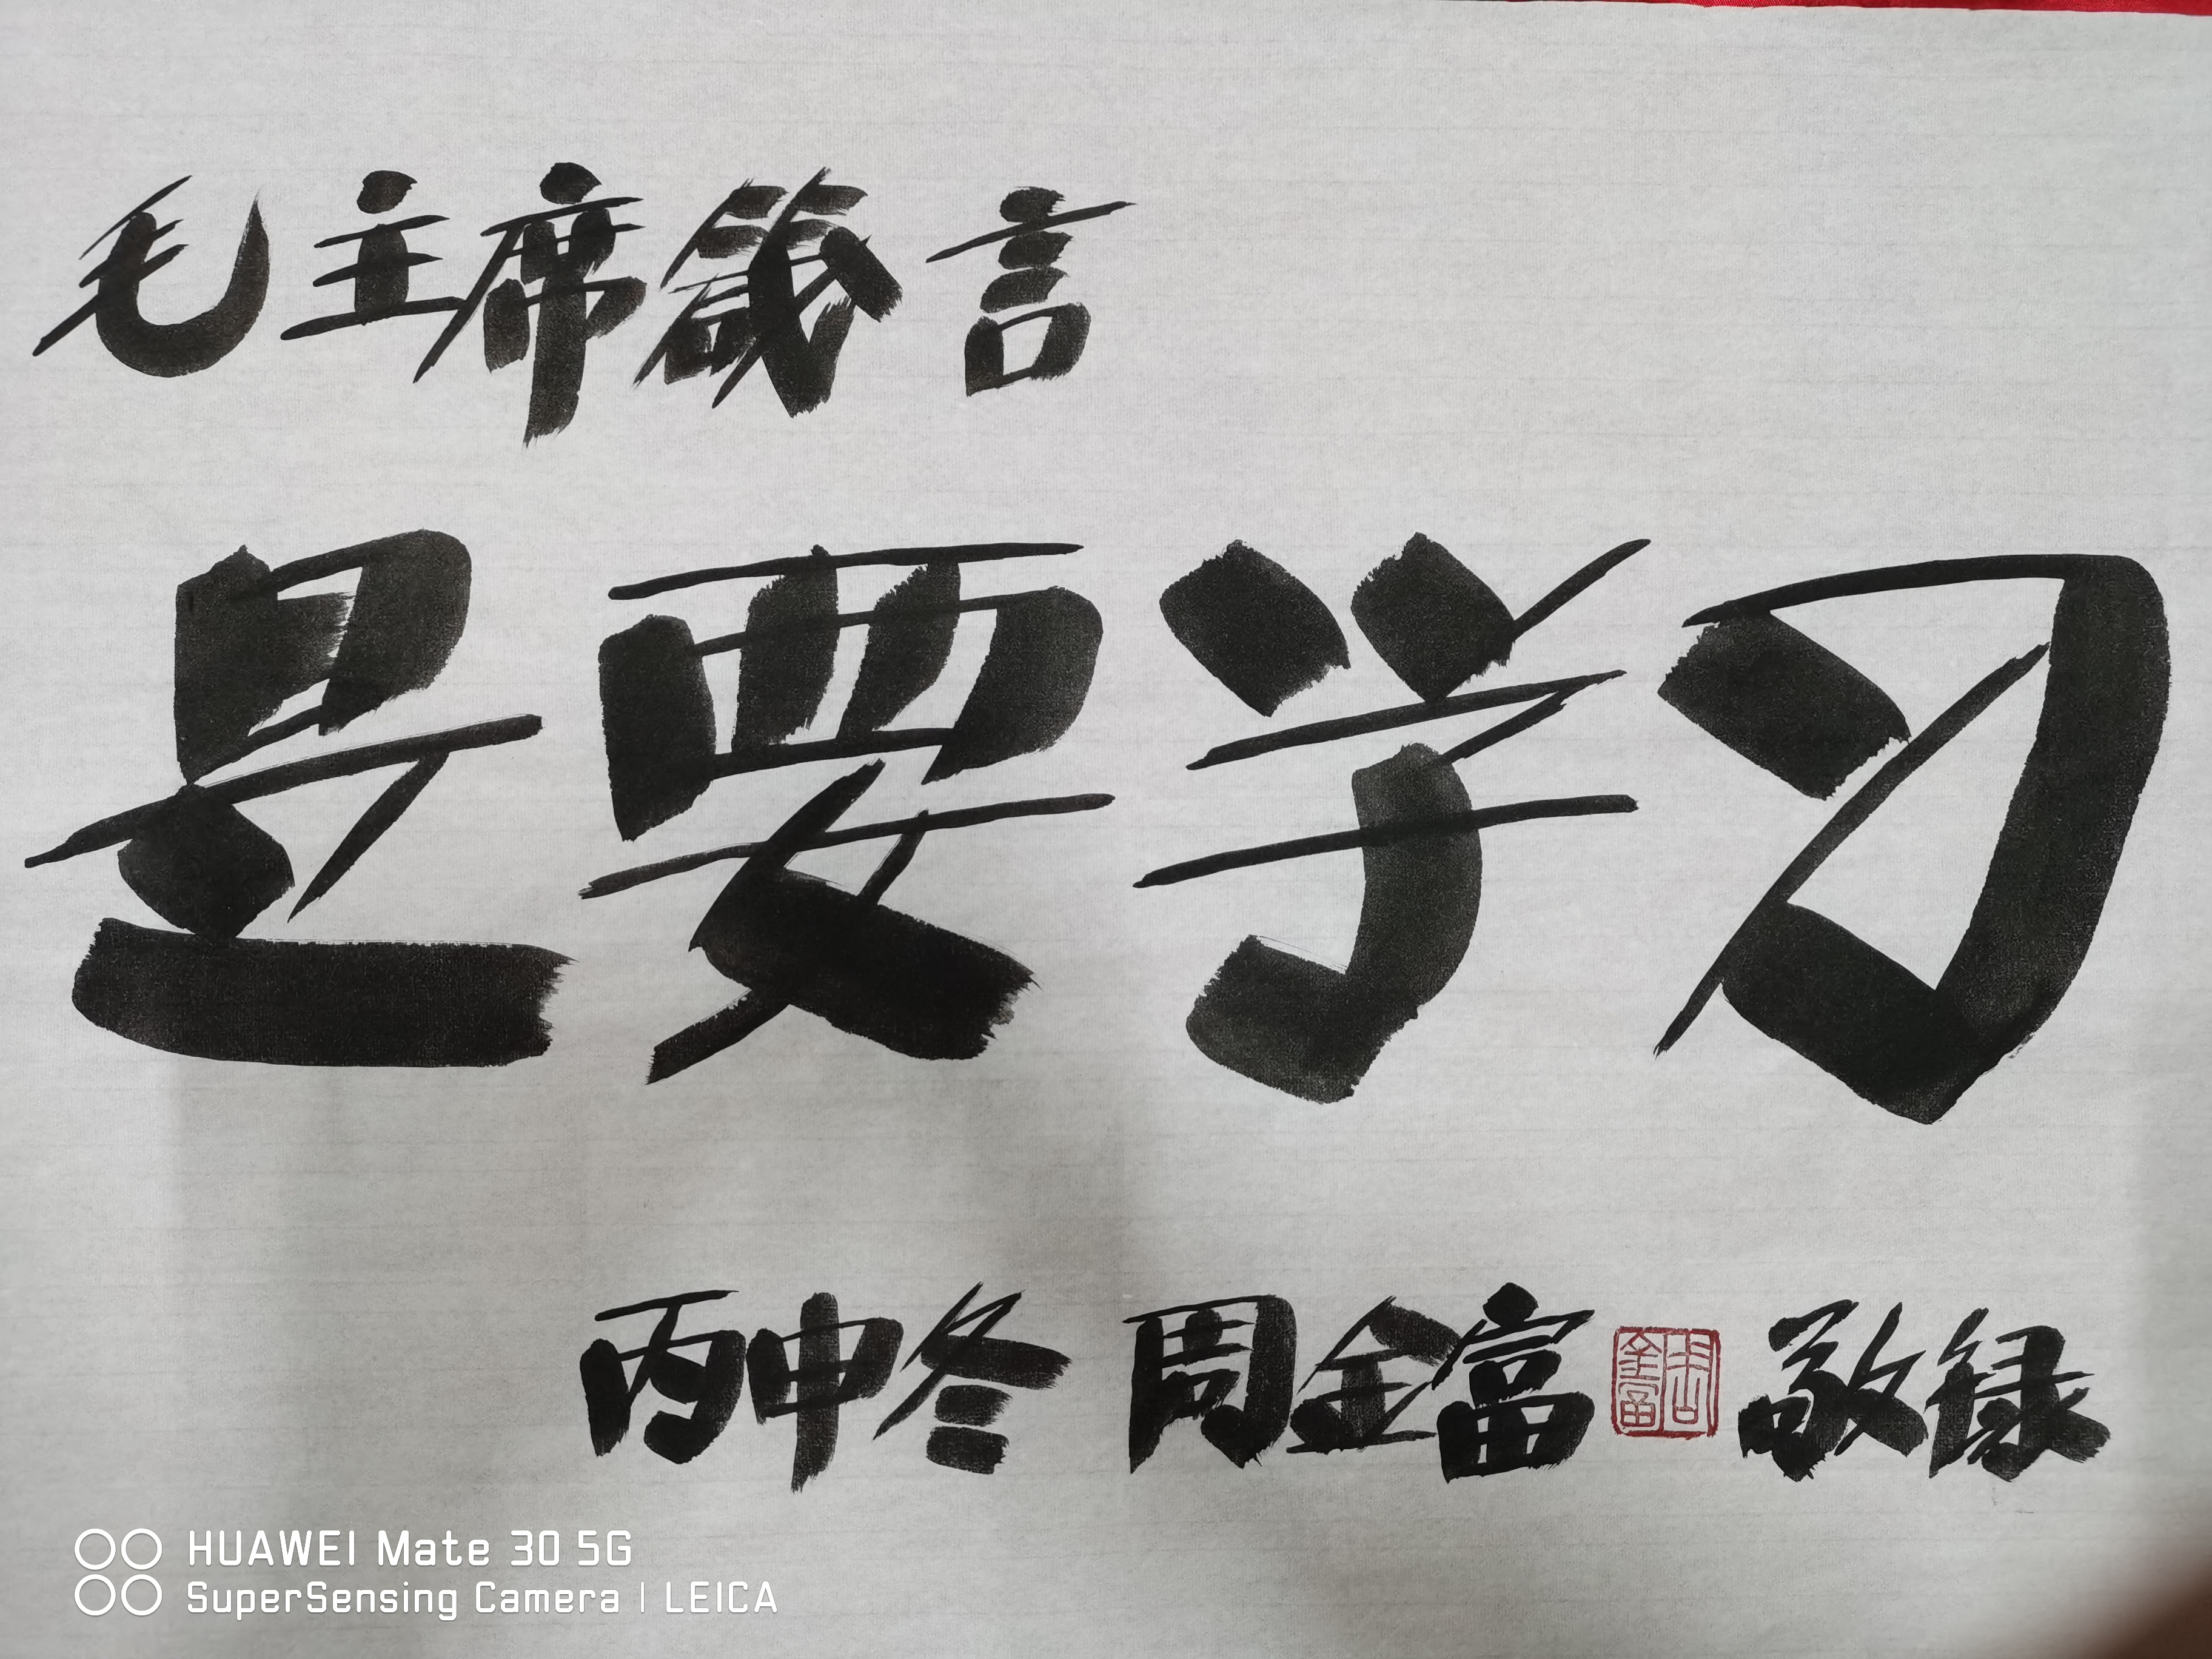 毛主席箴言
是要学习
丙申冬 周金富 周金富 敬録
HUAWEI Mate 30 5G
SuperSensing Camera | LEICA